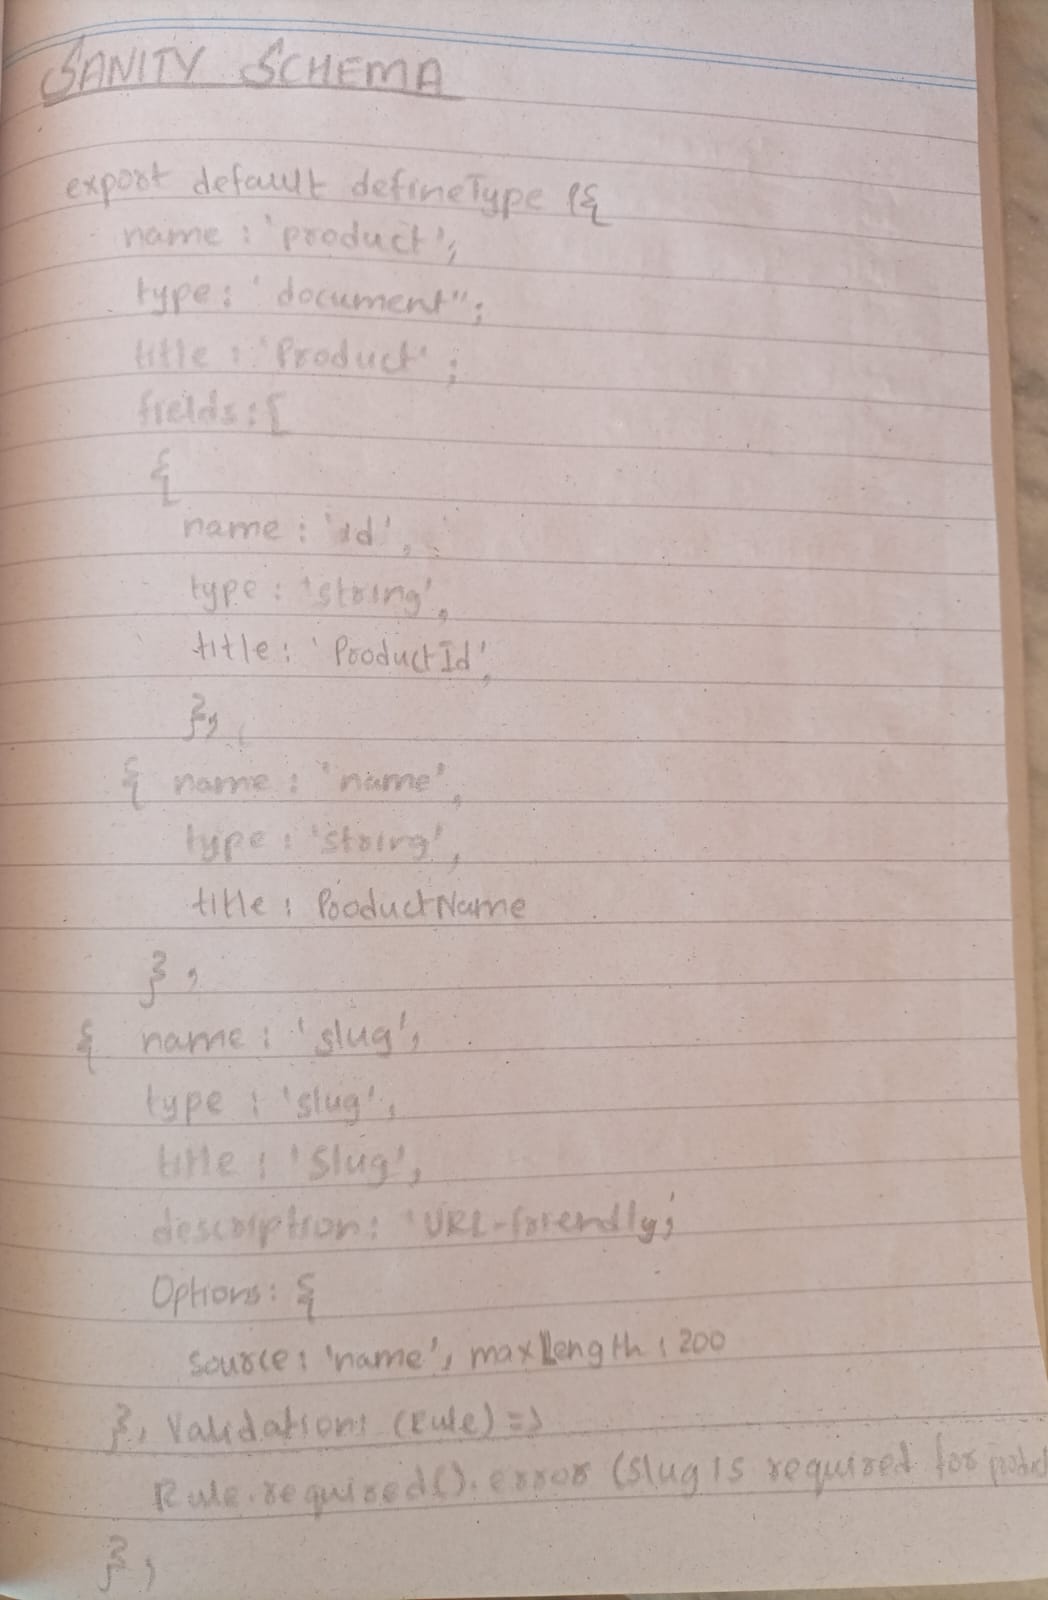 SANITY SCHEMA
export default defineType ({
name : 'product',
type : 'document";
title : 'Product' ;
fields : [
{
name : 'id',
type : 'string',
title : 'ProductId',
},
{ name : 'name',
type : 'string',
title : ProductName
},
{ name : 'slug',
type : 'slug',
title : 'Slug',
description : 'URL-friendly;
Options : {
source : 'name', maxLength : 200
}, Validation : (Rule) =>
Rule.required().error (slug is required for product
},